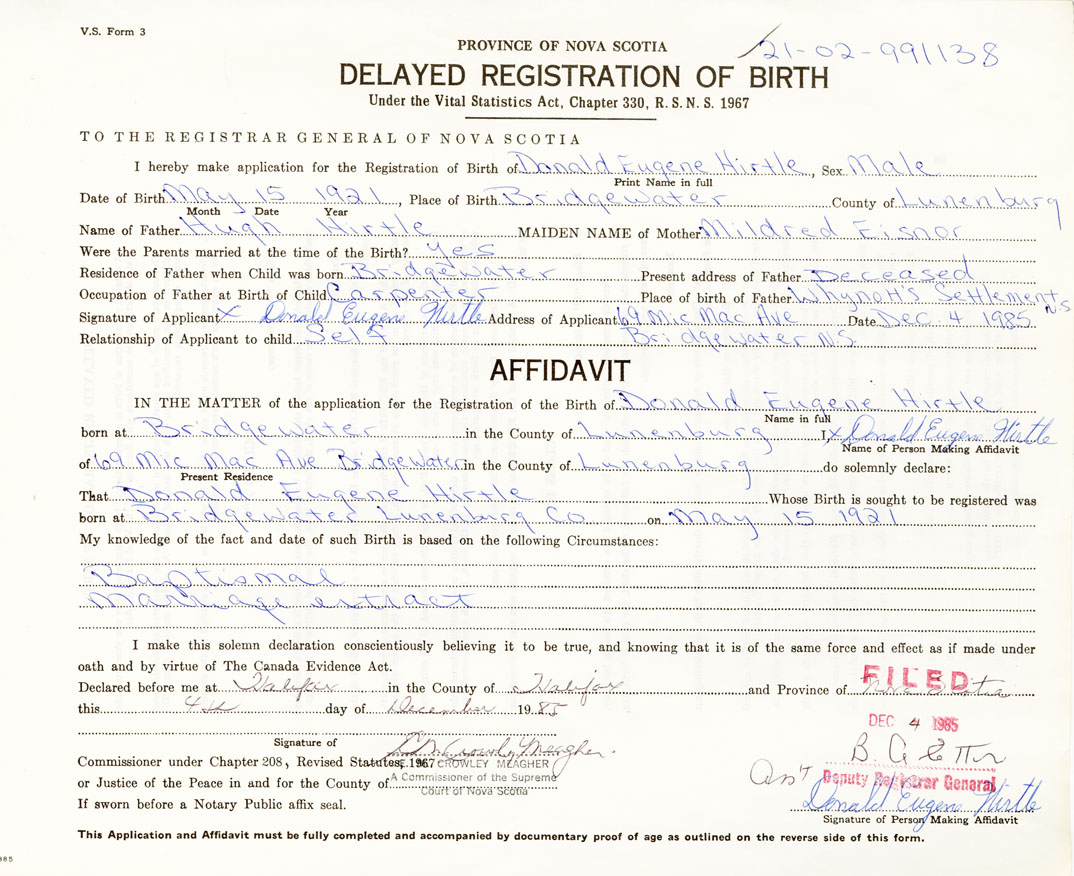 V.S. Form 3
PROVINCE OF NOVA SCOTIA
21-02-991138
DELAYED REGISTRATION OF BIRTH
Under the Vital Statistics Act, Chapter 330, R.S.N.S. 1967
TO THE REGISTRAR GENERAL OF NOVA SCOTIA
I hereby make application for the Registration of Birth of Donald Eugene Hirtle, Sex Male
Print Name in full
Date of Birth May 15 1921, Place of Birth Bridgewater County of Lunenburg
Month Date Year
Name of Father Hugh Hirtle MAIDEN NAME of Mother Mildred Eisnor
Were the Parents married at the time of the Birth? Yes
Residence of Father when Child was born Bridgewater Present address of Father Deceased
Occupation of Father at Birth of Child Carpenter Place of birth of Father Whynott's Settlement N.S
Signature of Applicant X Donald Eugene Hirtle Address of Applicant 69 Mic Mac Ave Date Dec. 4 1985
Relationship of Applicant to child Self Bridgewater N.S.
AFFIDAVIT
IN THE MATTER of the application for the Registration of the Birth of Donald Eugene Hirtle
Name in full
born at Bridgewater in the County of Lunenburg I X Donald Eugene Hirtle
Name of Person Making Affidavit
of 69 Mic Mac Ave Bridgewater in the County of Lunenburg do solemnly declare:
Present Residence
That Donald Eugene Hirtle Whose Birth is sought to be registered was
born at Bridgewater Lunenburg Co on May 15 1921
My knowledge of the fact and date of such Birth is based on the following Circumstances:
Baptismal
Marriage extract
I make this solemn declaration conscientiously believing it to be true, and knowing that it is of the same force and effect as if made under
oath and by virtue of The Canada Evidence Act.
Declared before me at Halifax in the County of Halifax and Province of Nova Scotia
FILED
this 4th day of December 1985
DEC 4 1985
Signature of
Crowley Meagher
Commissioner under Chapter 208, Revised Statutes, 1967
CROWLEY MEAGHER
A Commissioner of the Supreme
Court of Nova Scotia
or Justice of the Peace in and for the County of
Deputy Registrar General
If sworn before a Notary Public affix seal.
Donald Eugene Hirtle
Signature of Person Making Affidavit
This Application and Affidavit must be fully completed and accompanied by documentary proof of age as outlined on the reverse side of this form.